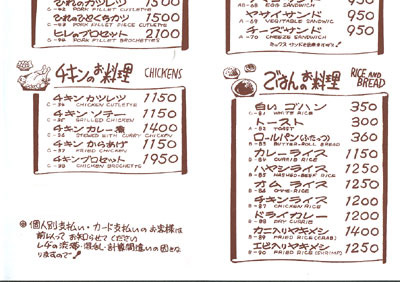 ひれのカツレツ 1350
ひれのひとくちカツ 1500
PORK FILLET PIECE CUTLET
ヒレのブロセット 2100
PORK FILLET BROCHETTES
EGG SANDWICH
ヤサイサンド 950
VEGETABLE SANDWICH
チーズサンド 950
CHEEZE SANDWICH
チキンのお料理 CHICKENS
チキンカツレツ 1150
CHICKEN CUTLETTE
チキンソテー 1150
GRILLED CHICKEN
チキンカレー煮 1400
STEWED WITH CURRY CHICKEN
チキンからあげ 1150
FRIED CHICKEN
チキンブロセット 1950
CHICKEN BROCHETTES
ごはんのお料理 RICE AND BREAD
白いゴハン 350
WHITE RICE
トースト 300
TOAST
ロールパン(ふたつ) 360
BUTTER-ROLL BREAD
カレーライス 1150
CURRIE RICE
ハヤシライス 1250
HASHED-BEEF RICE
オムライス 1250
OME-RICE
チキンライス 1250
CHICKEN RICE
ドライカレー 1200
DRY CURRIE
カニ入りヤキメシ 1400
FRIED RICE (CRAB)
エビ入りヤキメシ 1250
FRIED RICE (SHRIMP)
※個人別支払い・カード支払いのお客様は
前もってお知らせください
レジの渋滞・混乱・計算間違いの因とな
りますので